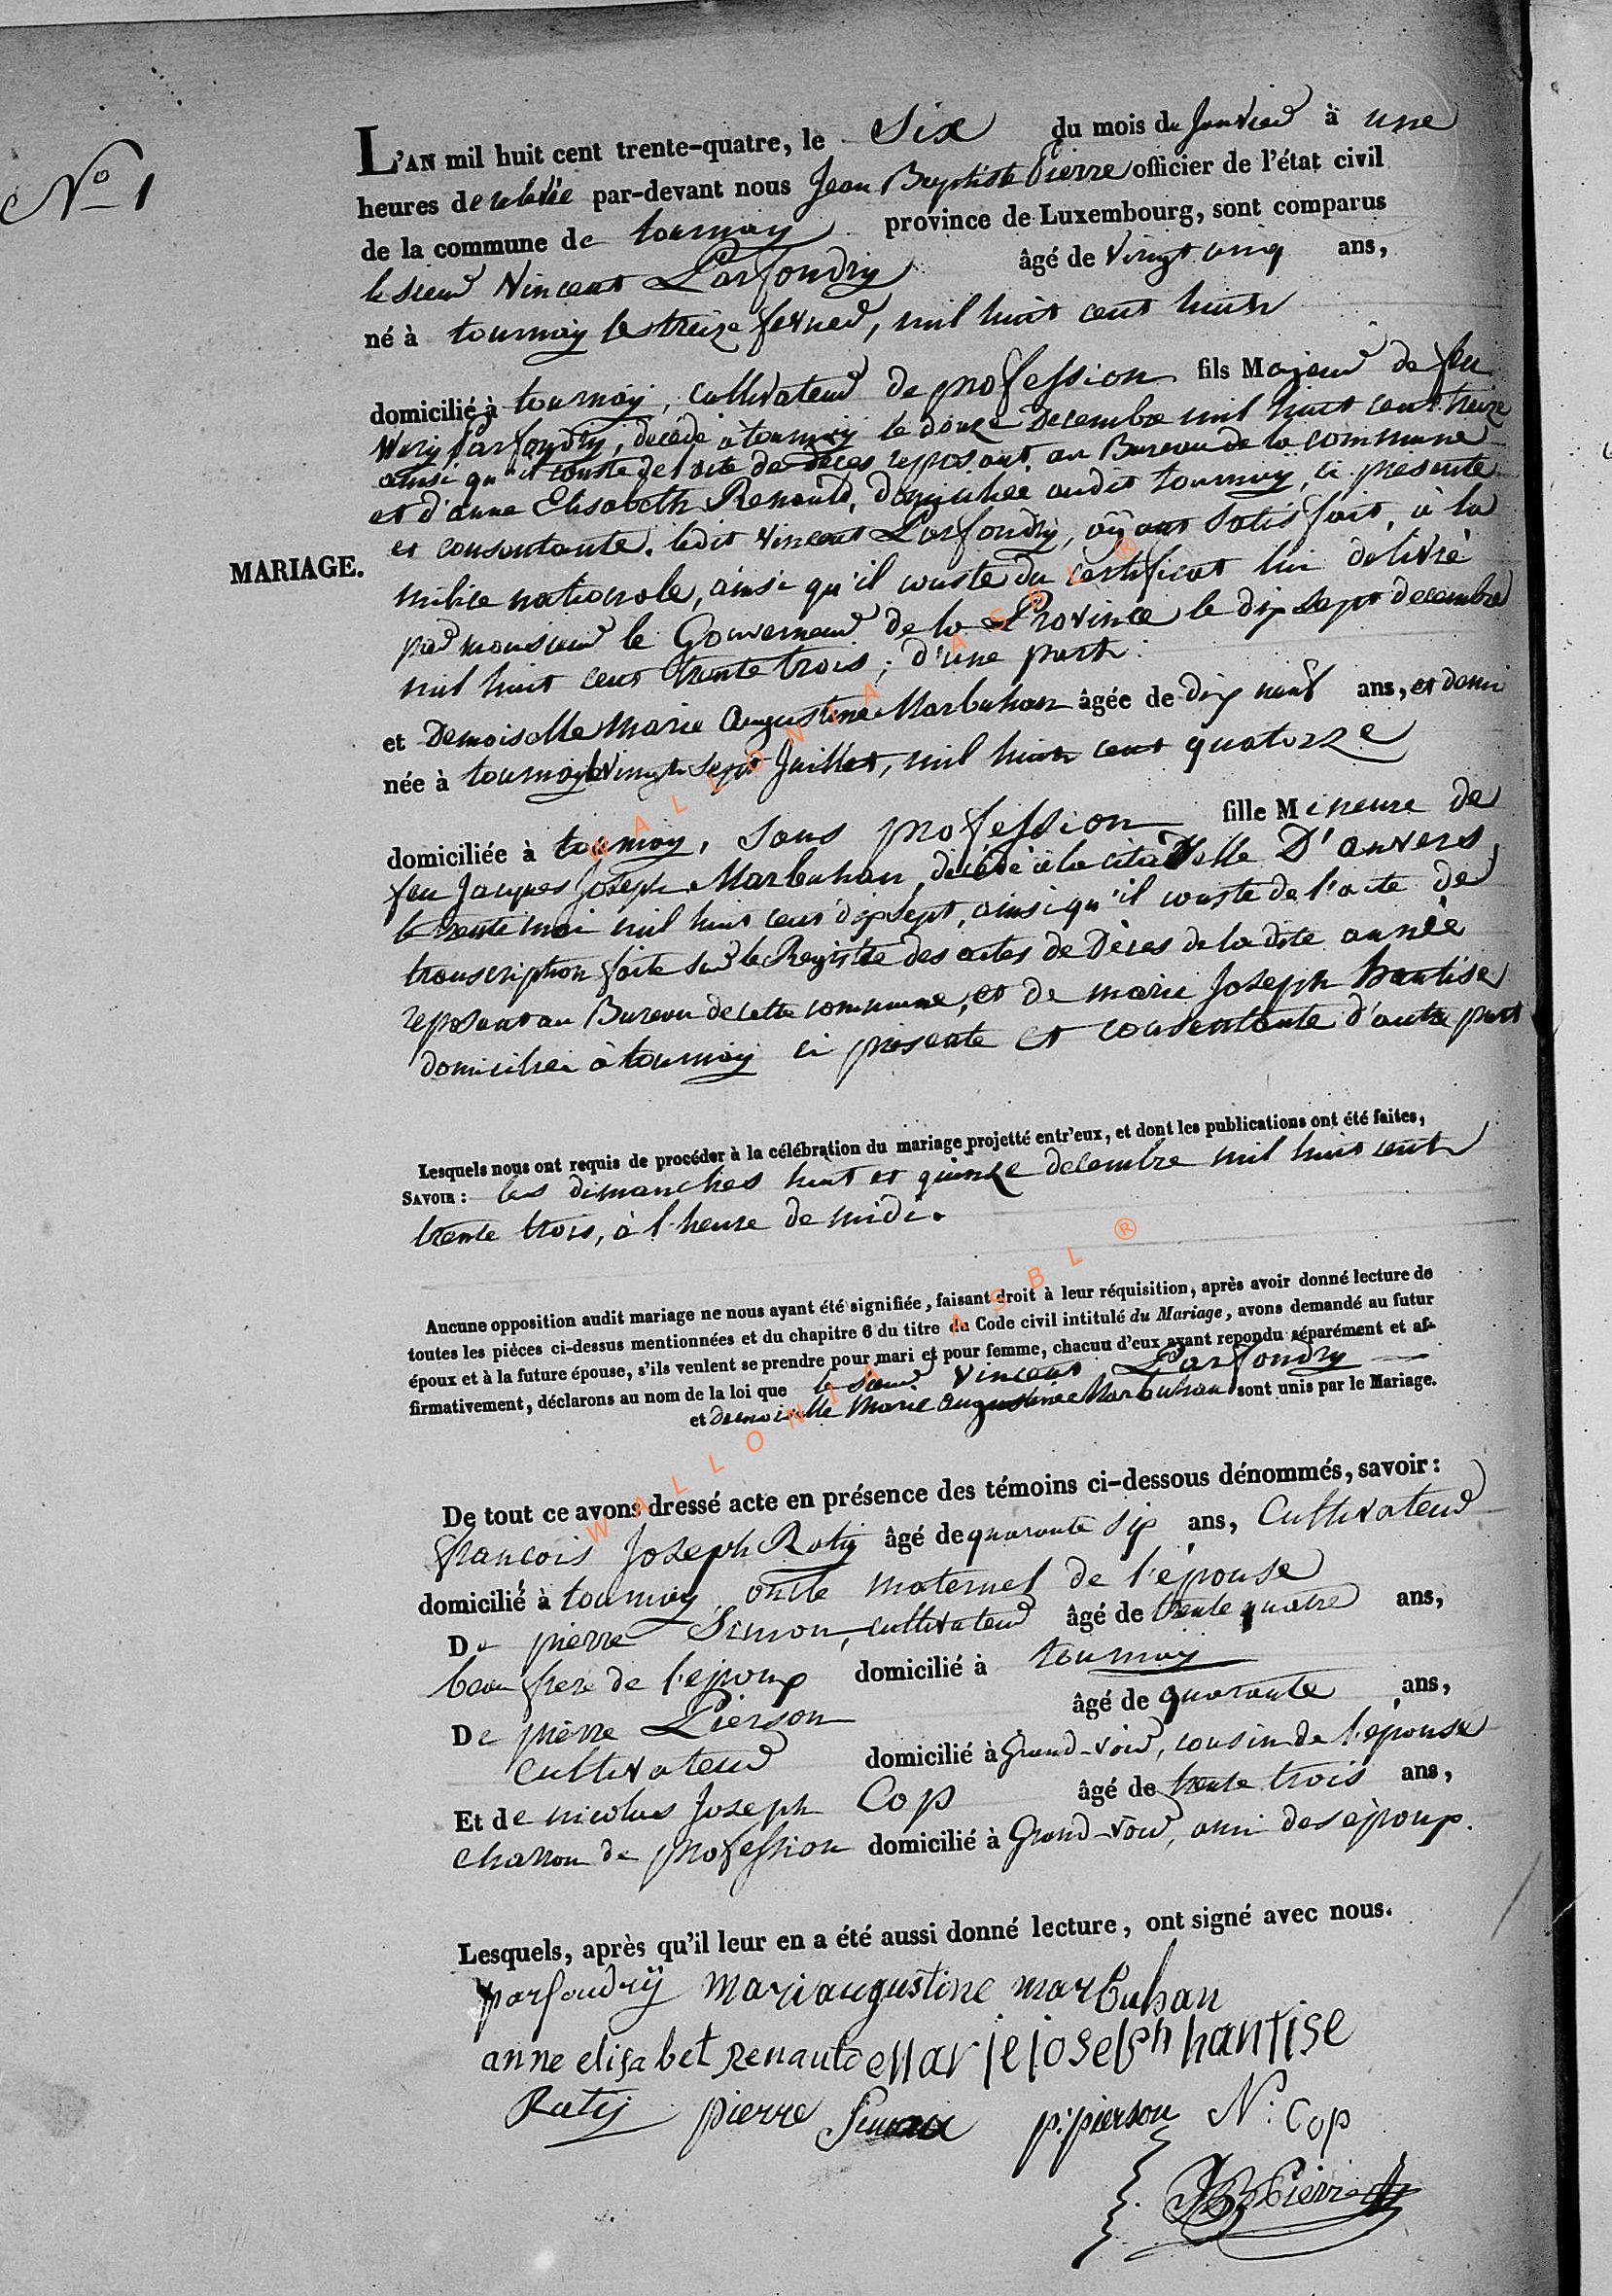 N° 1
L'AN mil huit cent trente-quatre, le Six du mois de Janvier à une
heures de relevée par-devant nous Jean Baptiste Pierre officier de l'état civil
de la commune de tournay province de Luxembourg, sont comparus
le sieur Vincent Parfondry âgé de vingt cinq ans,
né à tournay le treize fevrier, mil huit cent huit
domicilié à tournay, cultivateur de profession fils Majeur de feu
Parfondry, décédé à tournay le douze Decembre mil huit cent treize
ainsi qu'il conste de l'acte de décès reposant au Bureau de la commune
et d'anne Elisabeth Renauld, domiciliée audit tournay, ci présente
et consentante. ledit Vincent Parfondry, aÿant satisfait, à la
MARIAGE.
milice nationale, ainsi qu'il conste du certificat lui délivré
par monsieur le Gouverneur de la Province le dix sept decembre
mil huit cent trente trois; d'une part.
et Demoiselle Marie Augustine Marbuhan âgée de dix neuf ans, et demi
née à tournay le vingt sept Juillet, mil huit cent quatorze
domiciliée à tournay, sans profession fille Mineure de
feu Jacques Joseph Marbuhan, décédé à la citadelle D'anvers,
le trente mai mil huit cent dix sept, ainsi qu'il conste de l'acte de
transcription faite sur le Registre des actes de Décès de la dite année
reposant au Bureau de cette commune, et de marie Joseph hantise
domiciliée à tournay ci présente et consentante d'autre part
Lesquels nous ont requis de procéder à la célébration du mariage projetté entr'eux, et dont les publications ont été faites,
SAVOIR : les dimanches huit et quinze decembre mil huit cent
trente trois, à l'heure de midi.
Aucune opposition audit mariage ne nous ayant été signifiée, faisant droit à leur réquisition, après avoir donné lecture de
toutes les pièces ci-dessus mentionnées et du chapitre 6 du titre du Code civil intitulé du Mariage, avons demandé au futur
époux et à la future épouse, s'ils veulent se prendre pour mari et pour femme, chacun d'eux ayant repondu séparément et af-
firmativement, déclarons au nom de la loi que le sieur Vincent Parfondry
et demoiselle Marie Augustine Marbuhan sont unis par le Mariage.
De tout ce avons dressé acte en présence des témoins ci-dessous dénommés, savoir :
françois Joseph Raty âgé de quarante six ans, Cultivateur
domicilié à tournay, oncle maternel de l'épouse
De pierre Simon, cultivateur âgé de trente quatre ans,
beau frere de l'époux domicilié à tournay
De pierre Pierson âgé de quarante ans,
cultivateur domicilié à Grand-voir, cousin de l'épouse
Et de nicolas Joseph Cop âgé de trente trois ans,
charron de profession domicilié à Grand-voir, ami des époux.
Lesquels, après qu'il leur en a été aussi donné lecture, ont signé avec nous.
parfondrÿ mariaugustine marbuhan
anne elisabet renauld marie ioseph hantise
Raty pierre Simon p: pierson N: Cop
JB Pierre
WALLONIA ASBL ®
WALLONIA ASBL ®